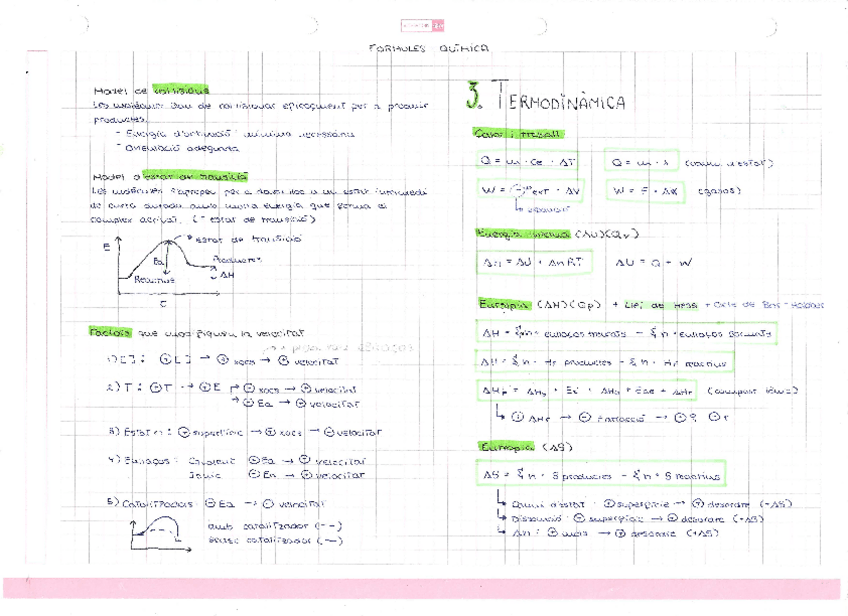 FORMULES QUÍMICA
Model de col·lisions
Les molècules han de col·lisionar eficaçment per a produir
productes.
- Energia d'activació mínima necessària
- Orientació adequada
Model d'estat de transició
Les molècules s'apropen per a donar lloc a un estat intermedi
de curta durada amb molta energia que forma el
complex activat. (= estat de transició)
E
estat de transició
Ea
Productes
Reactius
ΔH
Factors que modifiquen la velocitat
xocs → velocitat
2) T: ⊕T → ⊕E → ⊕ xocs → ⊕ velocitat
Ea → ⊕ velocitat
superfície → ⊕ xocs → velocitat
4) Enllaços: Covalent Ea → velocitat
Iònic Ea → velocitat
5) Catalitzadors Ea → velocitat
amb catalitzador (--)
sense catalitzador (—)
3. TERMODINÀMICA
Calor i treball
Q = m · Ce · ΔT
Q = m · λ (canvi d'estat)
W = (-) Pext · ΔV
W = F · ΔX (gasos)
expansió
Energia interna (ΔU)(Qv)
ΔH = ΔU + ΔnRT
ΔU = Q + W
Entalpia (ΔH)(Qp) + Llei de Hess + Cicle de Born-Haber
ΔH = Σn · enllaços trencats - Σn · enllaços formats
ΔH = Σn · Hf productes - Σn · Hf reactius
Entropia (ΔS)
ΔS = Σn · S productes - Σn · S reactius
Canvi d'estat: superfície → desordre (+ΔS)
Dissolució: superfície → desordre (+ΔS)
Δn: ⊕ mols → ⊕ desordre (+ΔS)